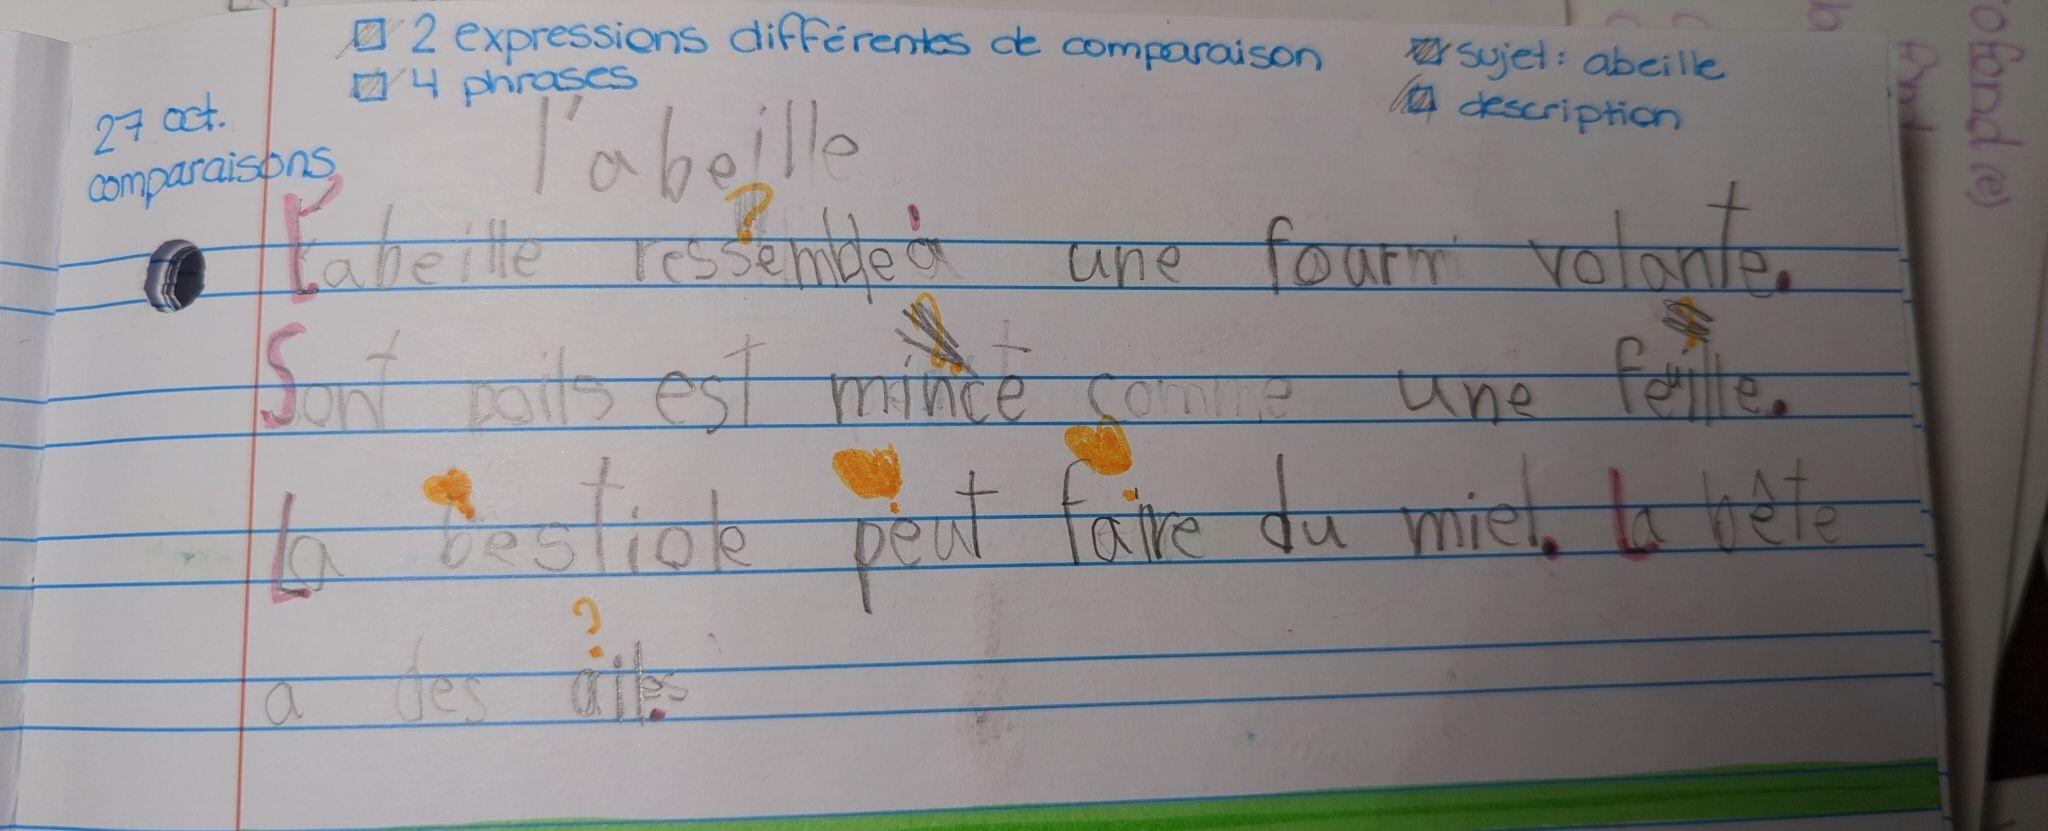 2 expressions différentes de comparaison
4 phrases
sujet: abeille
description
27 oct.
comparaisons
l'abeille
L'abeille ressemble à une fourmi volante.
Sont poils est mince comme une feuille.
La bestiole peut faire du miel. La bête
a des ailes.
ofond(e)